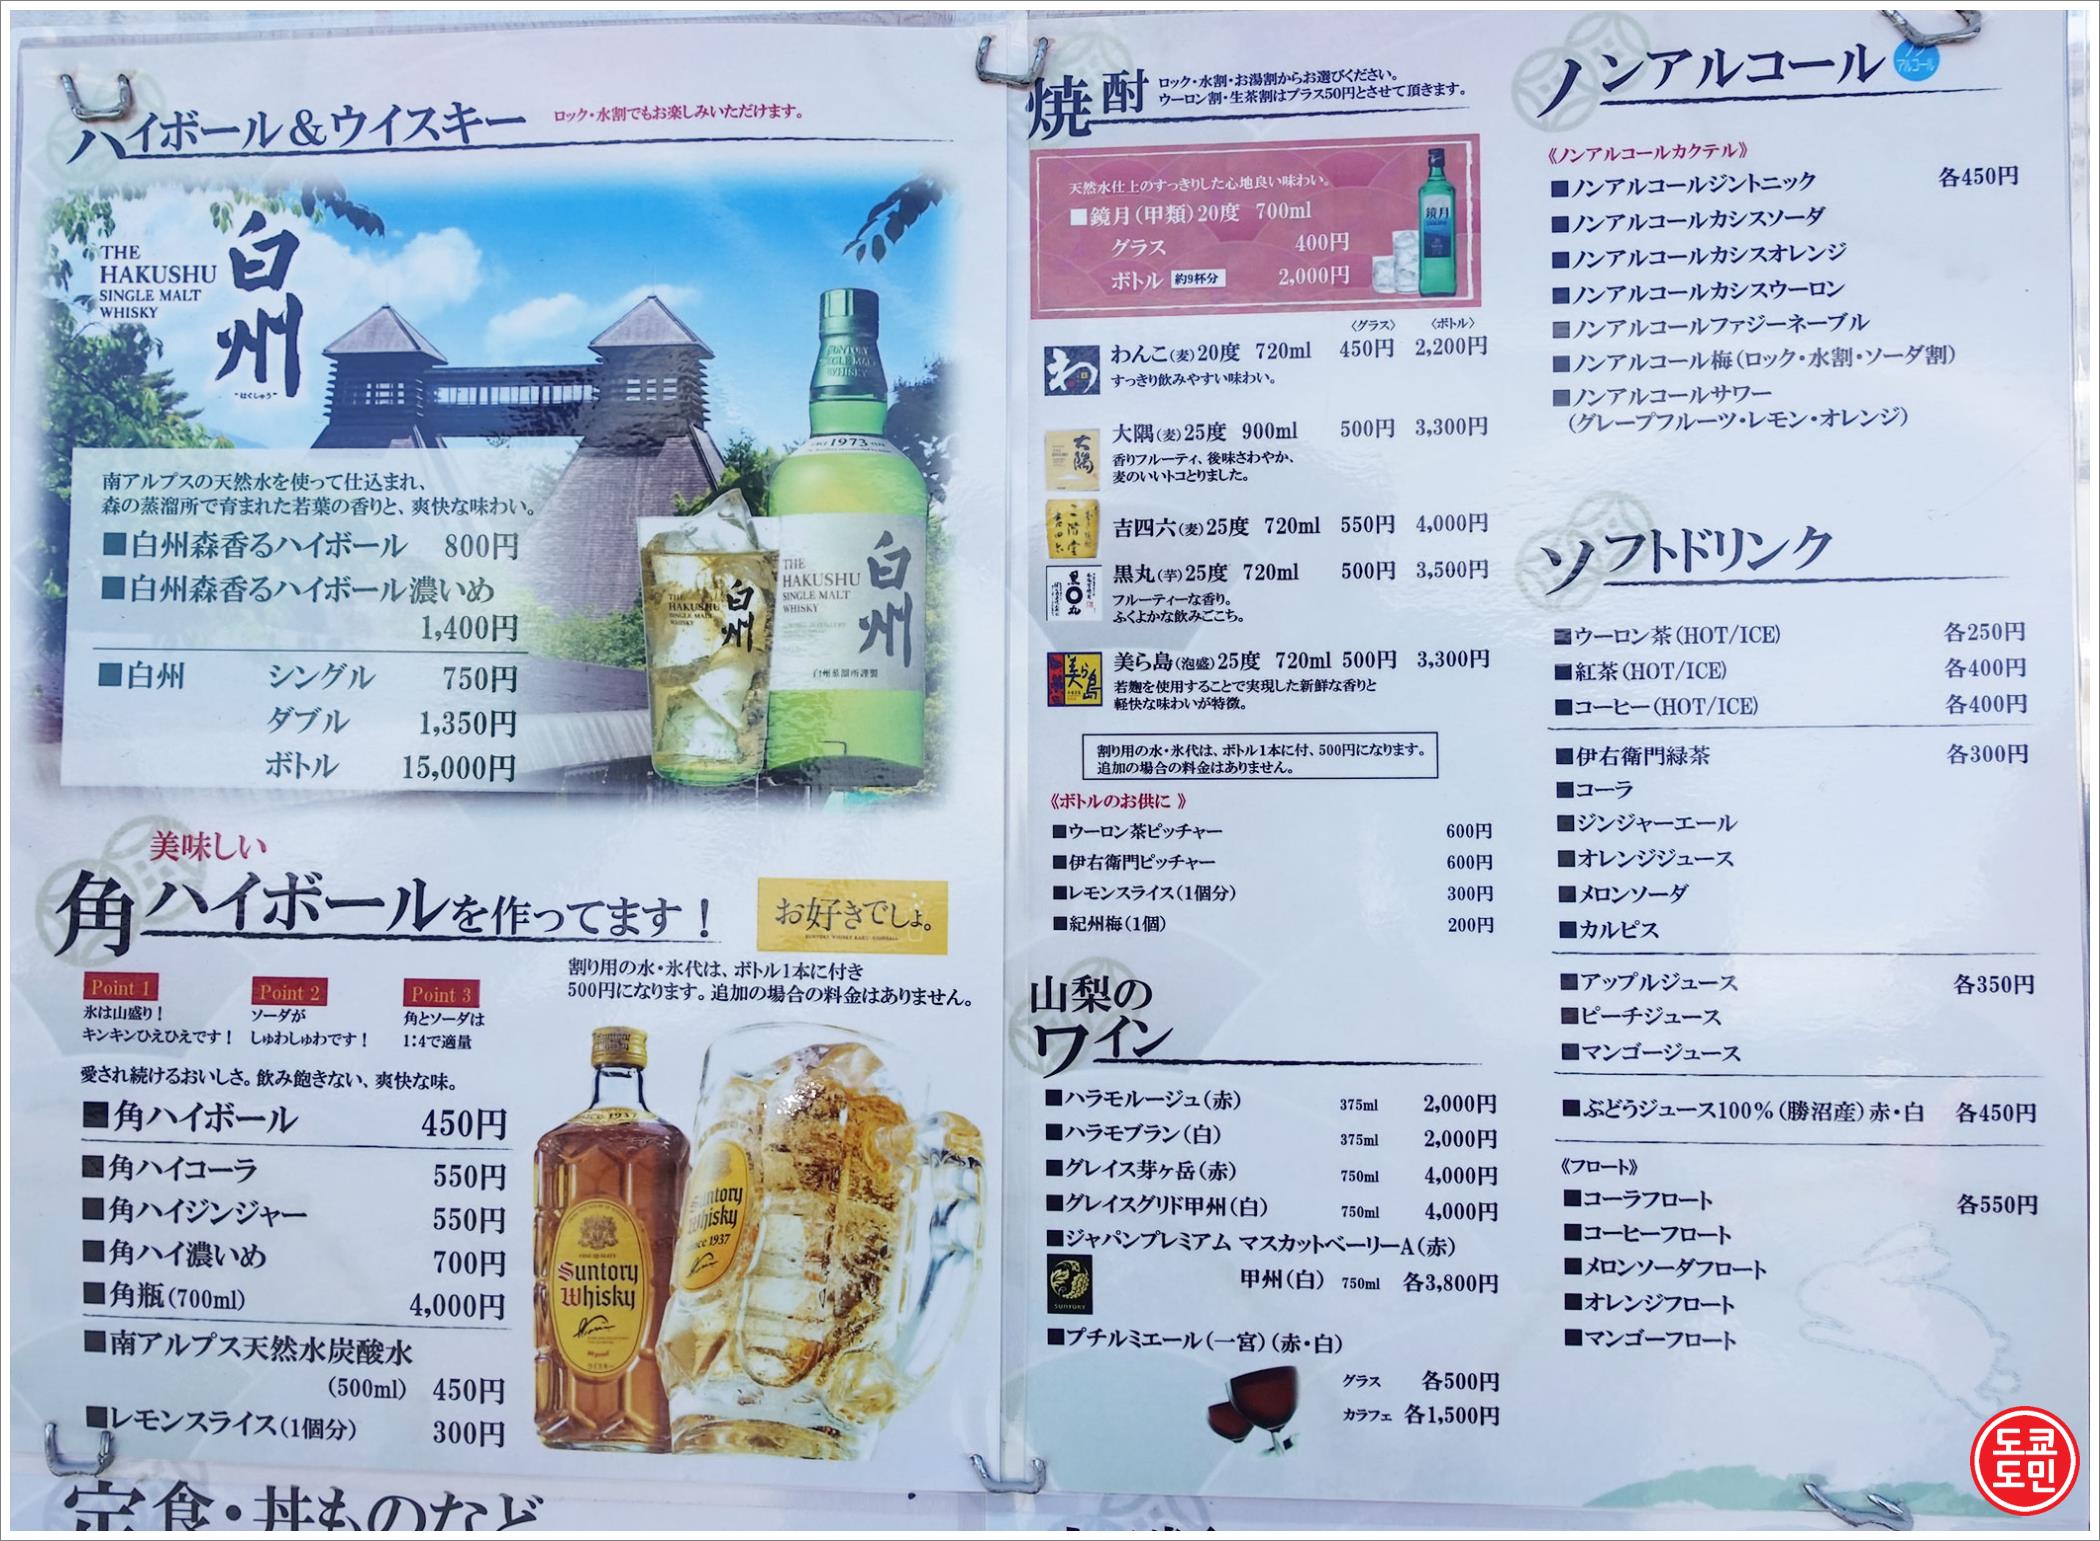 ハイボール&ウイスキー
ロック・水割でもお楽しみいただけます。
THE
HAKUSHU
SINGLE MALT
WHISKY
白州
"はくしゅう"
南アルプスの天然水を使って仕込まれ、
森の蒸溜所で育まれた若葉の香りと、爽快な味わい。
■白州森香るハイボール 800円
■白州森香るハイボール濃いめ
1,400円
■白州 シングル 750円
ダブル 1,350円
ボトル 15,000円
SUNTORY
SINGLE MALT
WHISKY
1973
THE
HAKUSHU
SINGLE MALT
WHISKY
白州
白州蒸溜所謹製
THE
HAKUSHU
SINGLE MALT
WHISKY
白州
美味しい
角ハイボールを作ってます!
お好きでしょ。
Point 1
氷は山盛り!
キンキンひえひえです!
Point 2
ソーダが
しゅわしゅわです!
Point 3
角とソーダは
1:4で適量
割り用の水・氷代は、ボトル1本に付き
500円になります。追加の場合の料金はありません。
愛され続けるおいしさ。飲み飽きない、爽快な味。
■角ハイボール 450円
■角ハイコーラ 550円
■角ハイジンジャー 550円
■角ハイ濃いめ 700円
■角瓶(700ml) 4,000円
■南アルプス天然水炭酸水
(500ml) 450円
■レモンスライス(1個分) 300円
SINCE 1937
Suntory
Whisky
Suntory
Whisky
Since 1937
定食・丼ものなど
焼酎
ロック・水割・お湯割からお選びください。
ウーロン割・生茶割はプラス50円とさせて頂きます。
天然水仕上のすっきりした心地良い味わい。
■鏡月(甲類)20度 700ml
グラス 400円
ボトル 約9杯分 2,000円
鏡月
〈グラス〉 〈ボトル〉
わ
わんこ(麦)20度 720ml 450円 2,200円
すっきり飲みやすい味わい。
大隅
大隅(麦)25度 900ml 500円 3,300円
香りフルーティ、後味さわやか、
麦のいいトコとりました。
二階堂
吉四六
吉四六(麦)25度 720ml 550円 4,000円
黒丸
黒丸(芋)25度 720ml 500円 3,500円
フルーティーな香り。
ふくよかな飲みごこち。
美ら島
美ら島(泡盛)25度 720ml 500円 3,300円
若麹を使用することで実現した新鮮な香りと
軽快な味わいが特徴。
割り用の水・氷代は、ボトル1本に付、500円になります。
追加の場合の料金はありません。
《ボトルのお供に 》
■ウーロン茶ピッチャー 600円
■伊右衛門ピッチャー 600円
■レモンスライス(1個分) 300円
■紀州梅(1個) 200円
山梨の
ワイン
■ハラモルージュ(赤) 375ml 2,000円
■ハラモブラン(白) 375ml 2,000円
■グレイス茅ヶ岳(赤) 750ml 4,000円
■グレイスグリド甲州(白) 750ml 4,000円
■ジャパンプレミアム マスカットベーリーA(赤)
甲州(白) 750ml 各3,800円
SUNTORY
■プチルミエール(一宮)(赤・白)
グラス 各500円
カラフェ 各1,500円
ノンアルコール
ノン
アルコール
《ノンアルコールカクテル》
■ノンアルコールジントニック 各450円
■ノンアルコールカシスソーダ
■ノンアルコールカシスオレンジ
■ノンアルコールカシスウーロン
■ノンアルコールファジーネーブル
■ノンアルコール梅(ロック・水割・ソーダ割)
■ノンアルコールサワー
(グレープフルーツ・レモン・オレンジ)
ソフトドリンク
■ウーロン茶(HOT/ICE) 各250円
■紅茶(HOT/ICE) 各400円
■コーヒー(HOT/ICE) 各400円
■伊右衛門緑茶 各300円
■コーラ
■ジンジャーエール
■オレンジジュース
■メロンソーダ
■カルピス
■アップルジュース 各350円
■ピーチジュース
■マンゴージュース
■ぶどうジュース100%(勝沼産)赤・白 各450円
《フロート》
■コーラフロート 各550円
■コーヒーフロート
■メロンソーダフロート
■オレンジフロート
■マンゴーフロート
도쿄
도민